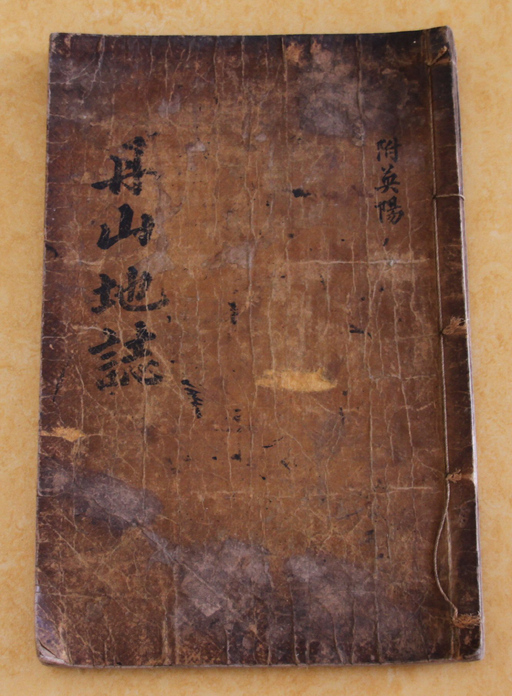 附英陽
丹山地誌